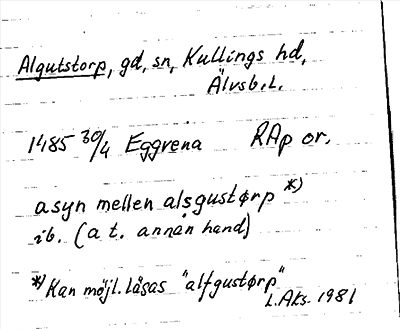 Algutstorp, gd, sn, Kullings hd,
Älvsb. l.
1485 30/4 Eggvena RAp or.
asyn mellen alsgustørp *)
ib. (a t. annan hand)
*) Kan möjl. läsas "alfgustørp"
L.Aks. 1981